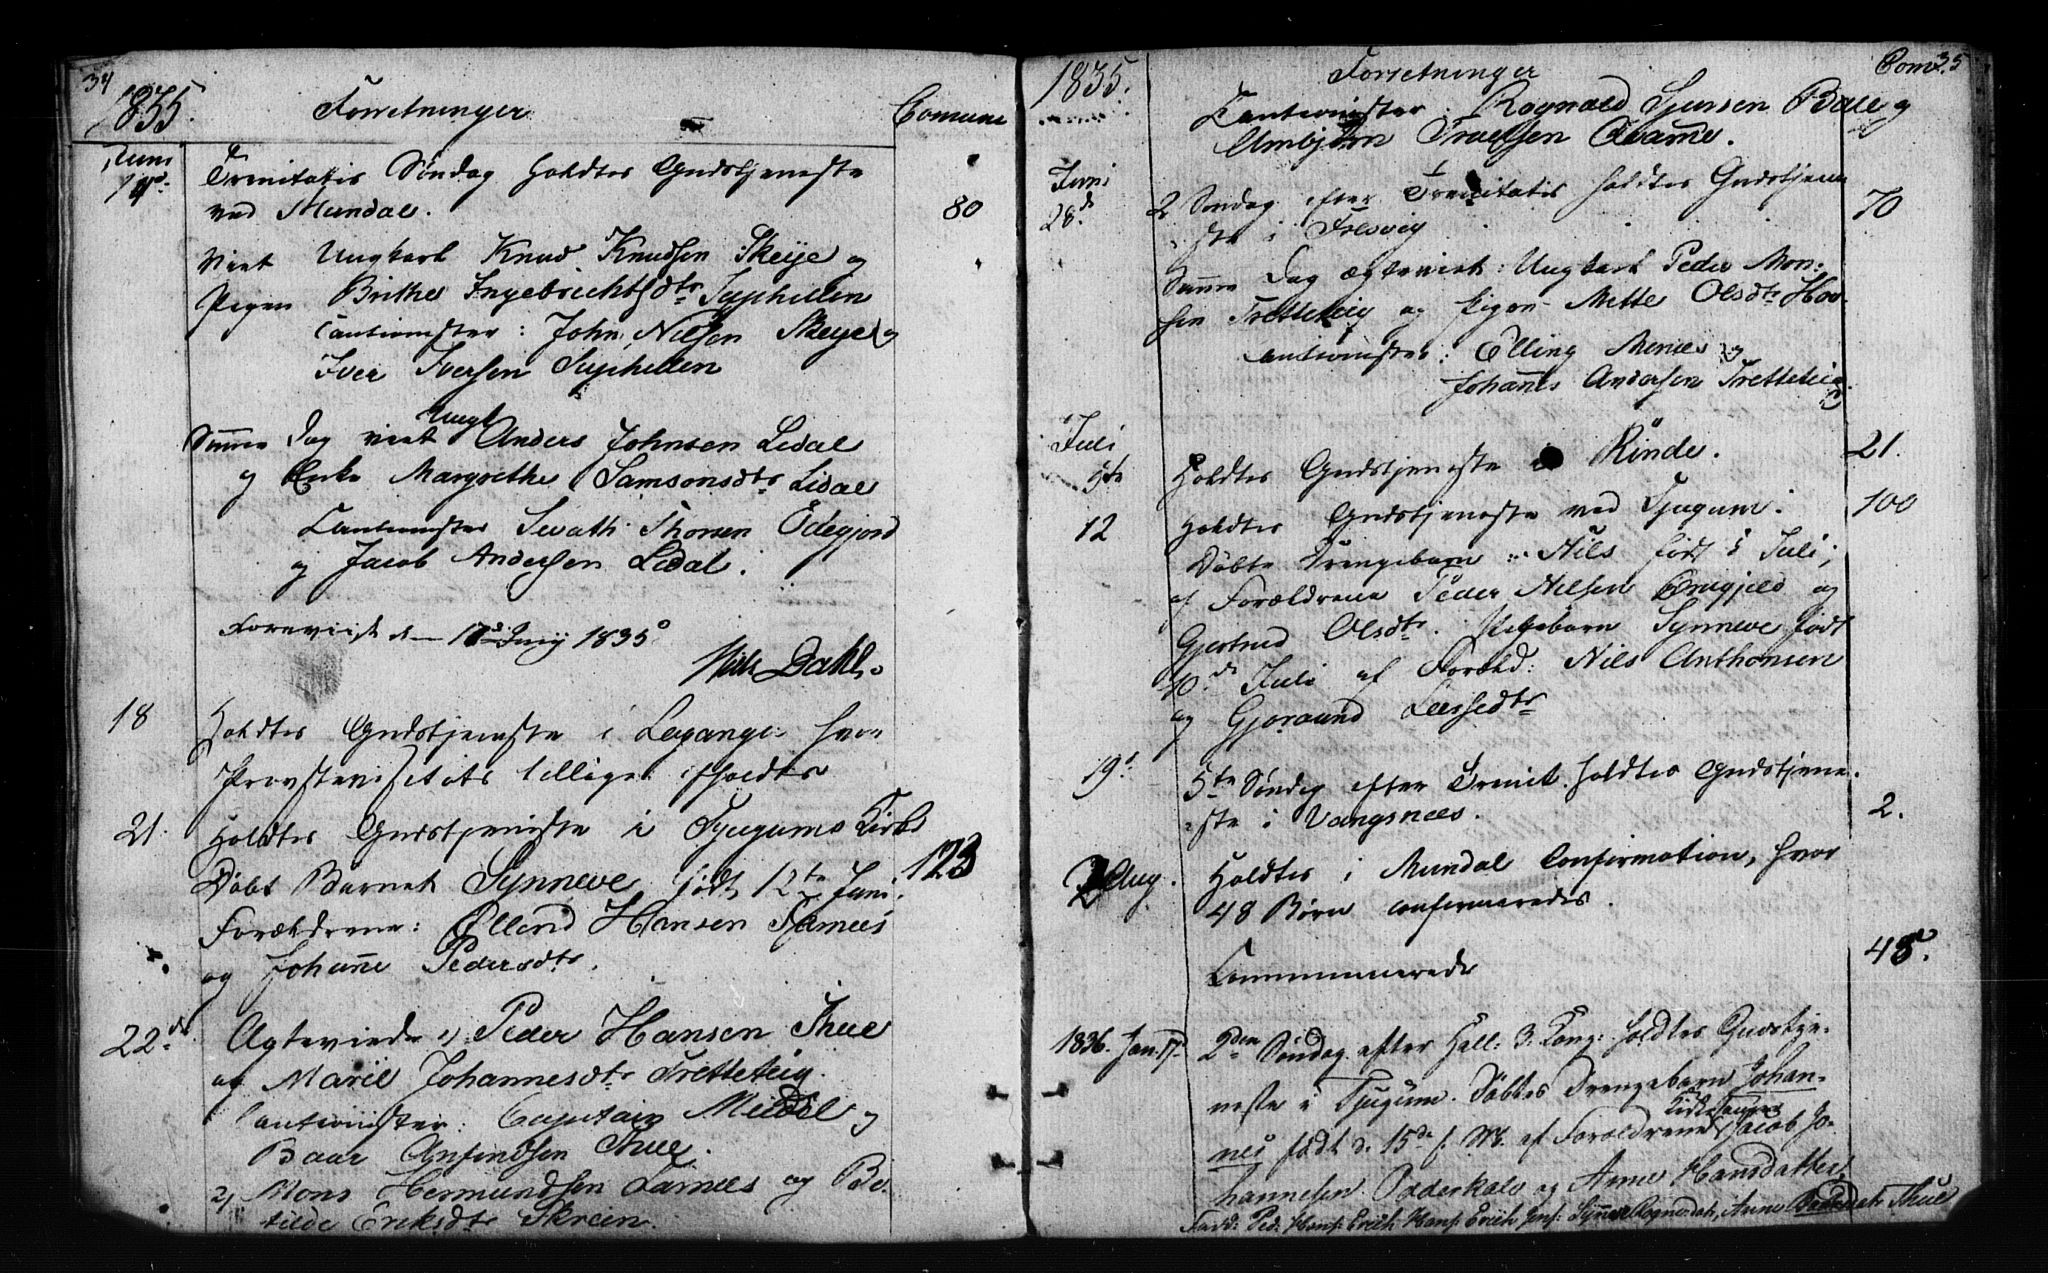 34
1835.
Forretninger
Comuni
Juni
14de
Trinitatis Søndag holdtes Gudstjeneste
ved Mundal.
80
Viet Ungkarl Knud Knudsen Skeije og
Pigen Brithe Ingebrichtsdtr Suphellen
Cautionister: John Nilsen Skeije og
Iver Iversen Suphellen
Ungk
Samme Dag viet Anders Johnsen Lidal
og Enke Margrethe Samsonsdtr Lidal
Cautionister Sivath Thorsen Ödegjord
og Jacob Andersen Lidal.
Foreviist d 17 Juny 1835
Dahl.
18
Holdtes Gudstjeneste i Leganger hvor
Provstevisitats tillige afholdtes
21.
Holdtes Gudstjeneste i Tjugums Kirke
123
Døbt Barnet Synneve født 12te Juni.
Forældrene: Ellend Hansen Tjernees
og Johanne Pedersdtr.
22de
Ægteviede 1) Peder Hansen Thue
og Marie Johannesdtr Tretteteig.
Cautionister: Capitain Meidel og
Baar Ansindsen Thue.
2) Mons Hermundsen Larnees og Bo-
tilde Eriksdtr Skrein.
1835.
Forretninger
Com. 35
Cautionister: Ragnald Sjursen Bale og
Ambjørn Truelsen Qvame.
Juni
28de
2 Søndag efter Trinitatis holdtes Gudstjene
ste i Fresvig
70
Samme Dag ægteviet: Ungkarl Peder Mon-
sen Tretteteig og Pigen Mette Olsdtr Hov-
Cautionister: Elling Menes og
Johannes Andersen Tretteteig
Juli
5te
Holdtes Gudstjeneste i Rinde.
21.
12
Holdtes Gudstjeneste ved Tjugum.
100
Døbte Drengebarn: Nils født 5 Juli;
af Forældrene Peder Nilsen og
Gjertrud Olsdtr. Pigebarn Synneve født
10de Juli af Foræld: Nils Anthonsen
og Gjøraund Lassedtr
19de
5te Søndag efter Trinit. holdtes Gudstjene-
ste i Vangsnees.
2.
2 Aug.
Holdtes i Mundal Confirmation, hvor
48 Børn confirmeredes.
Communicerede
48.
1836. Jan. 17.
2den Søndag efter Hell: 3 Kong: holdtes Gudstje-
neste i Tjugum. Døbtes Drengebarn Johan-
nes født d. 15de f. M. af Forældrene Jacob Jo-
hannesen Odderkale og Anne Hansdatter
Fadd: Ped: Hans: Erich Hans: Erich Jens: Synneve Rognedatt, Anne Thue